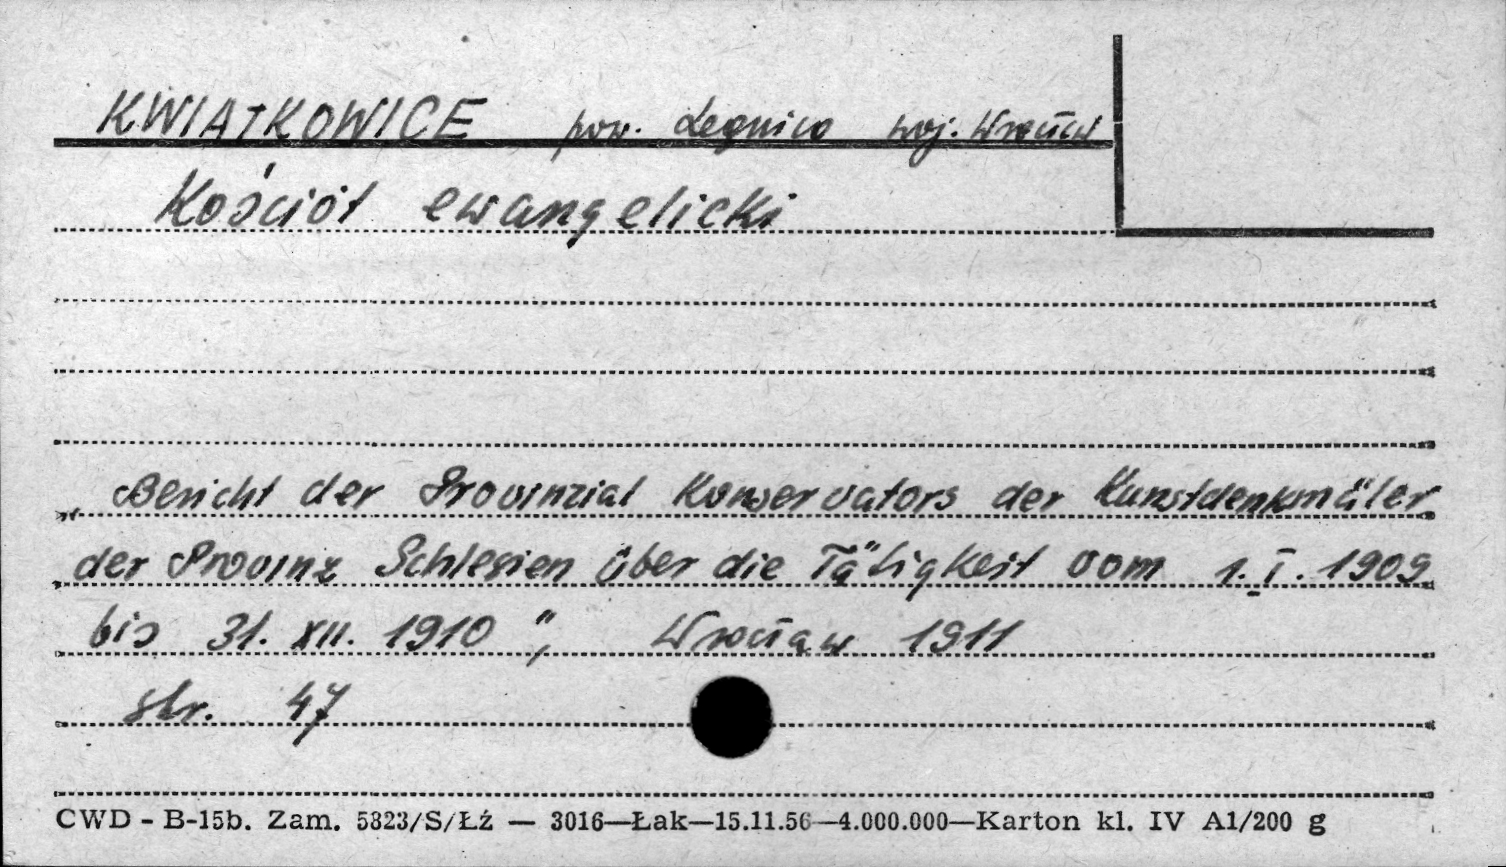 KWIATKOWICE pow. Legnica woj. Wrocław
Kościół ewangelicki
„Bericht der Provinzial Konservators der Kunstdenkmäler
der Provinz Schlesien über die Tätigkeit vom 1.I.1909
bis 31. XII. 1910", Wrocław 1911
str. 47
CWD - B-15b. Zam. 5823/S/Łź — 3016—Łak—15.11.56—4.000.000—Karton kl. IV A1/200 g